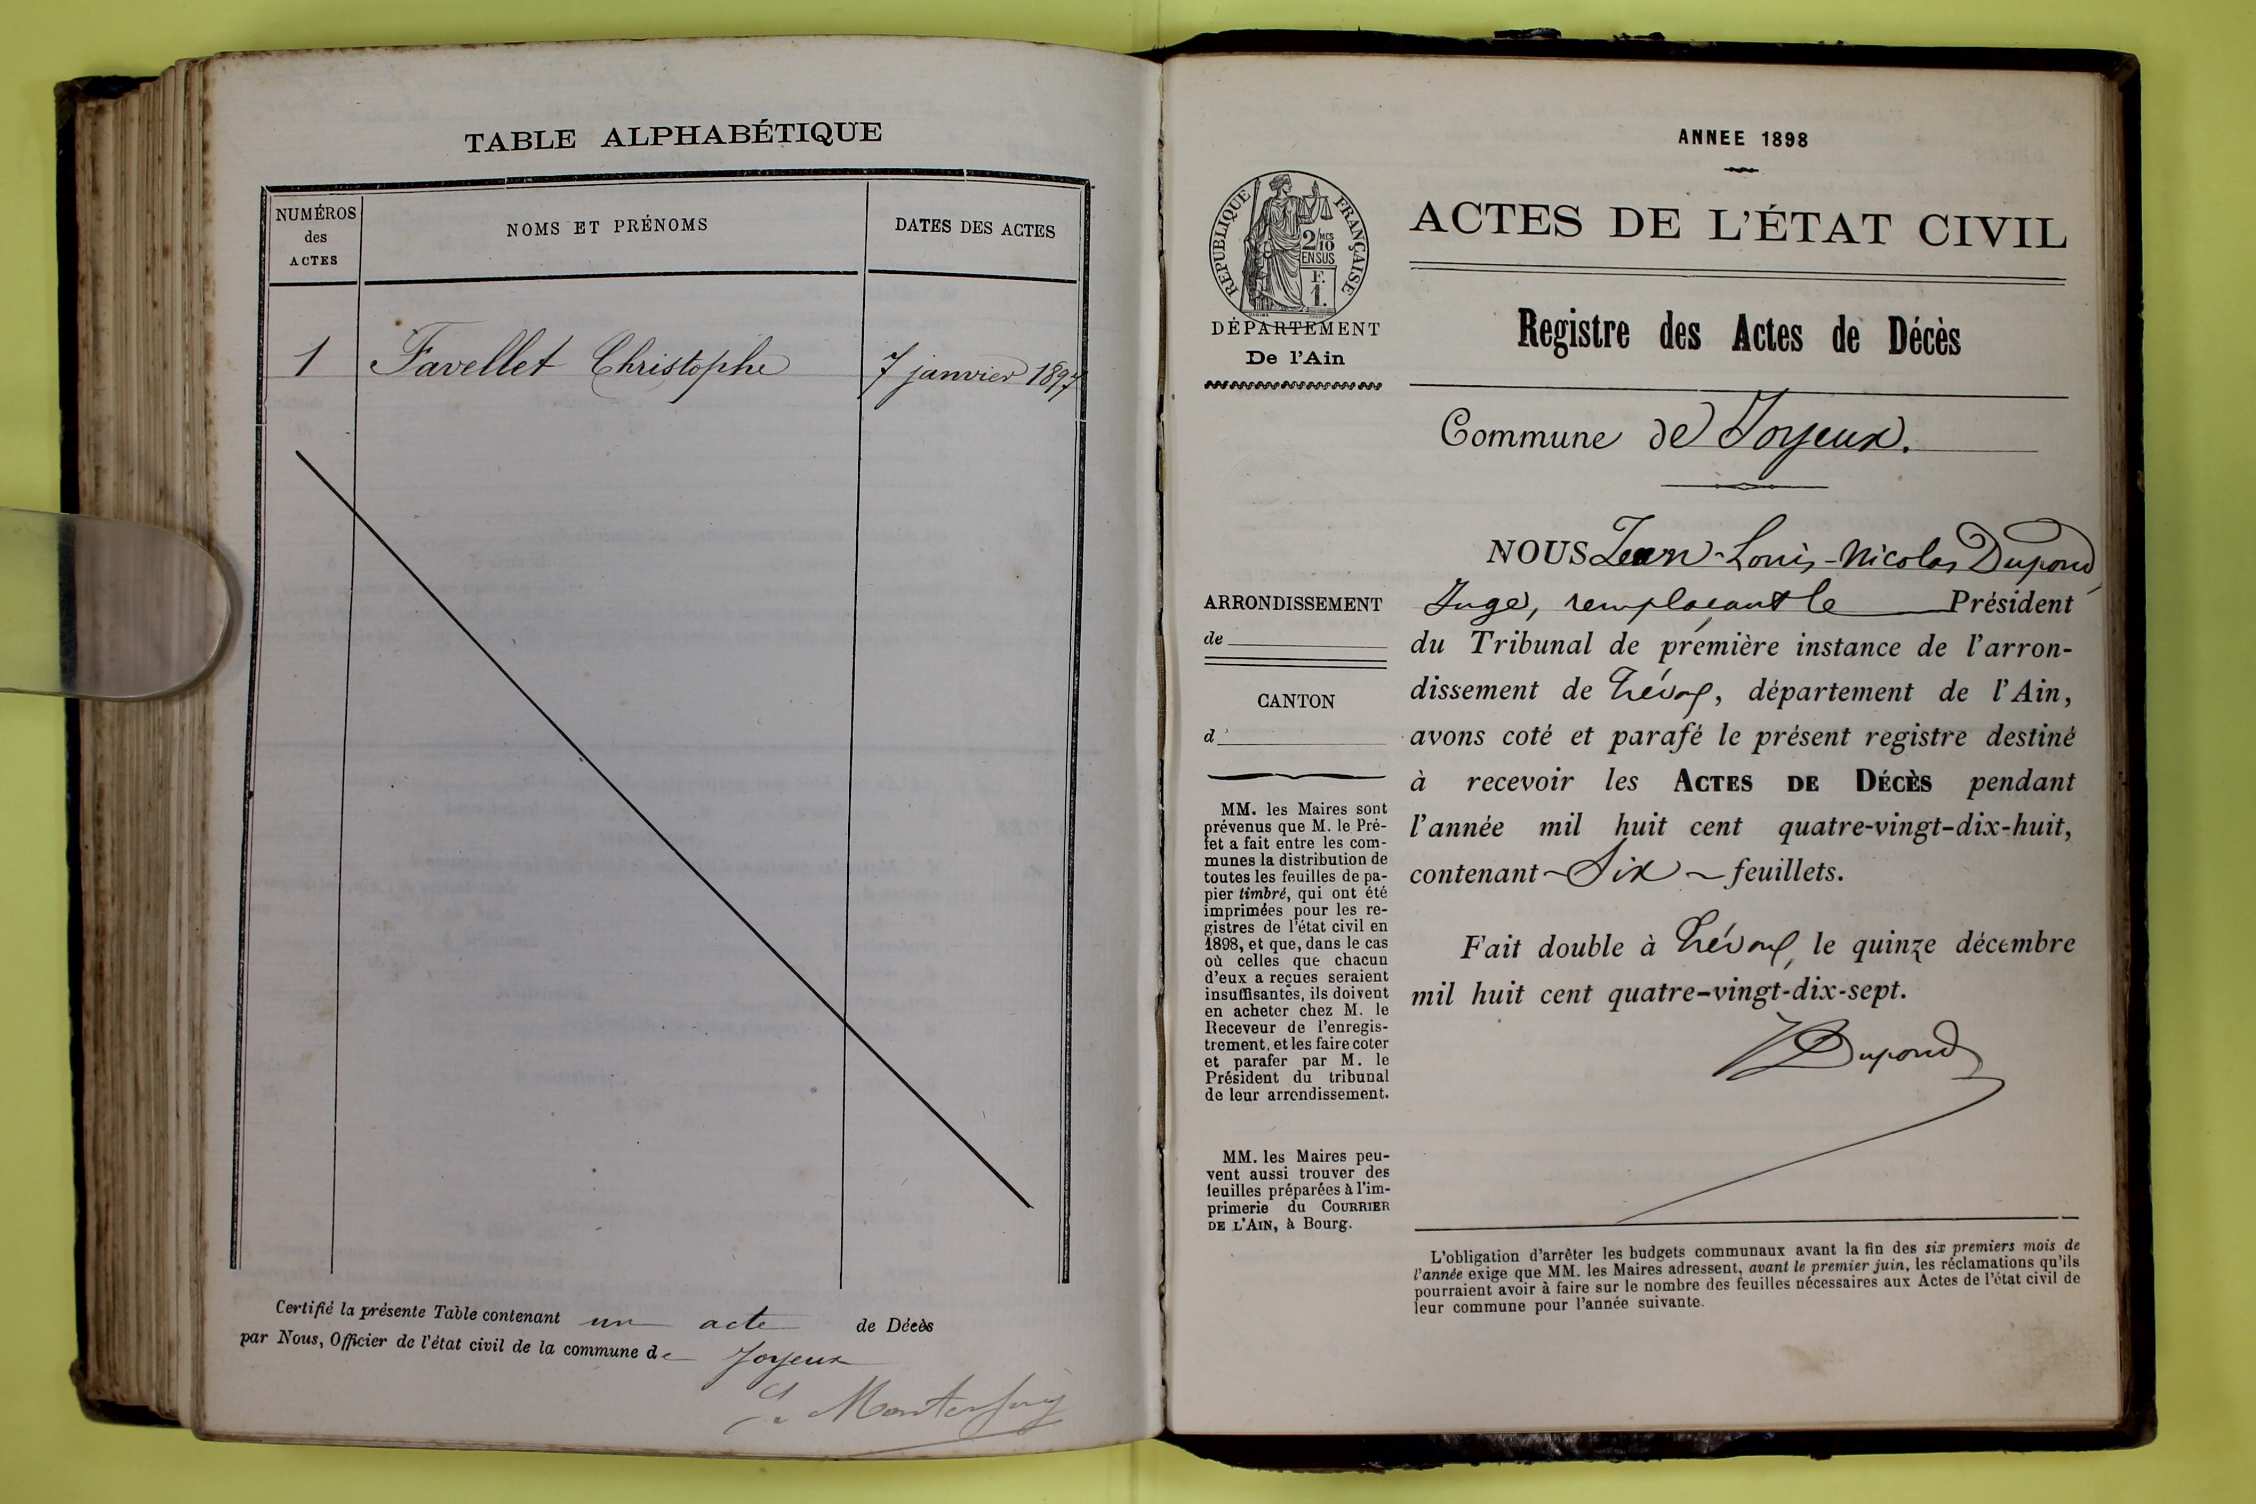 TABLE ALPHABÉTIQUE
NUMÉROS
des
ACTES
NOMS ET PRÉNOMS
DATES DES ACTES
1 Favellet Christophe 7 janvier 1897
Certifié la présente Table contenant un acte de Décès
par Nous, Officier de l'état civil de la commune de Joyeux
ANNEE 1898
RÉPUBLIQUE FRANÇAISE
2/10 MES
EN SUS
F.
1.
DÉPARTEMENT
De l'Ain
ACTES DE L'ÉTAT CIVIL
Registre des Actes de Décès
Commune de Joyeux.
ARRONDISSEMENT
de
CANTON
d
MM. les Maires sont
prévenus que M. le Pré-
fet a fait entre les com-
munes la distribution de
toutes les feuilles de pa-
pier timbré, qui ont été
imprimées pour les re-
gistres de l'état civil en
1898, et que, dans le cas
où celles que chacun
d'eux a reçues seraient
insuffisantes, ils doivent
en acheter chez M. le
Receveur de l'enregis-
trement, et les faire coter
et parafer par M. le
Président du tribunal
de leur arrondissement.
MM. les Maires peu-
vent aussi trouver des
feuilles préparées à l'im-
primerie du COURRIER
DE L'AIN, à Bourg.
NOUS Jean-Louis-Nicolas Dupond,
Juge, remplaçant le Président
du Tribunal de première instance de l'arron-
dissement de Trévoux, département de l'Ain,
avons coté et parafé le présent registre destiné
à recevoir les ACTES DE DÉCÈS pendant
l'année mil huit cent quatre-vingt-dix-huit,
contenant ~ Six ~ feuillets.
Fait double à Trévoux, le quinze décembre
mil huit cent quatre-vingt-dix-sept.
Dupond
L'obligation d'arrêter les budgets communaux avant la fin des six premiers mois de
l'année exige que MM. les Maires adressent, avant le premier juin, les réclamations qu'ils
pourraient avoir à faire sur le nombre des feuilles nécessaires aux Actes de l'état civil de
leur commune pour l'année suivante.